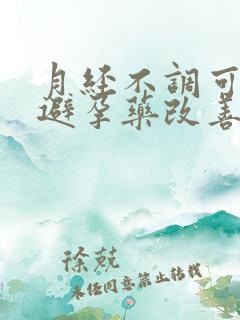 月經不調可
避孕藥改善
徐兢
未任同意禁止转载